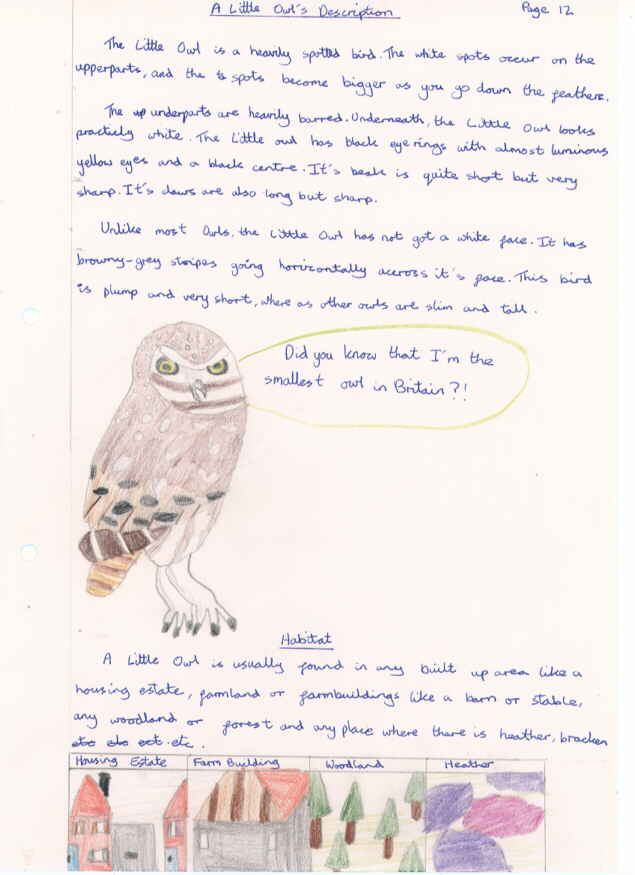 A Little Owl's Description
Page 12
The Little Owl is a heavily spotted bird. The white spots occur on the
upperparts, and the spots become bigger as you go down the feathers.
The underparts are heavily barred. Underneath, the Little Owl looks
practicly white. The Little owl has black eye rings with almost luminous
yellow eyes and a black centre. It's beak is quite short but very
sharp. It's claws are also long but sharp.
Unlike most owls, the Little Owl has not got a white face. It has
browny-grey stripes going horizontally accross it's face. This bird
is plump and very short, where as other owls are slim and tall.
Did you know that I'm the
smallest owl in Britain?!
Habitat
A Little Owl is usually found in any built up area like a
housing estate, farmland or farmbuildings like a barn or stable,
any woodland or forest and any place where there is heather, bracken
etc.
Housing Estate
Farm Building
Woodland
Heather